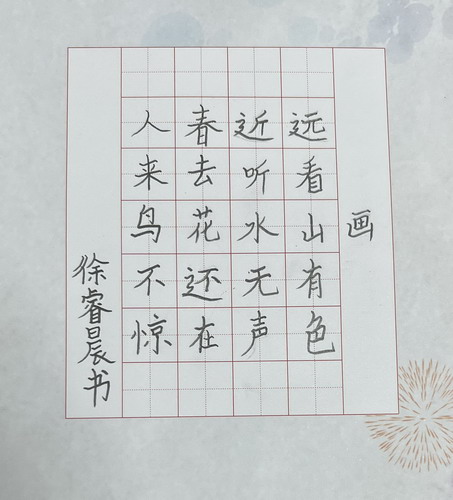 画
远看山有色
近听水无声
春去花还在
人来鸟不惊
徐睿晨书